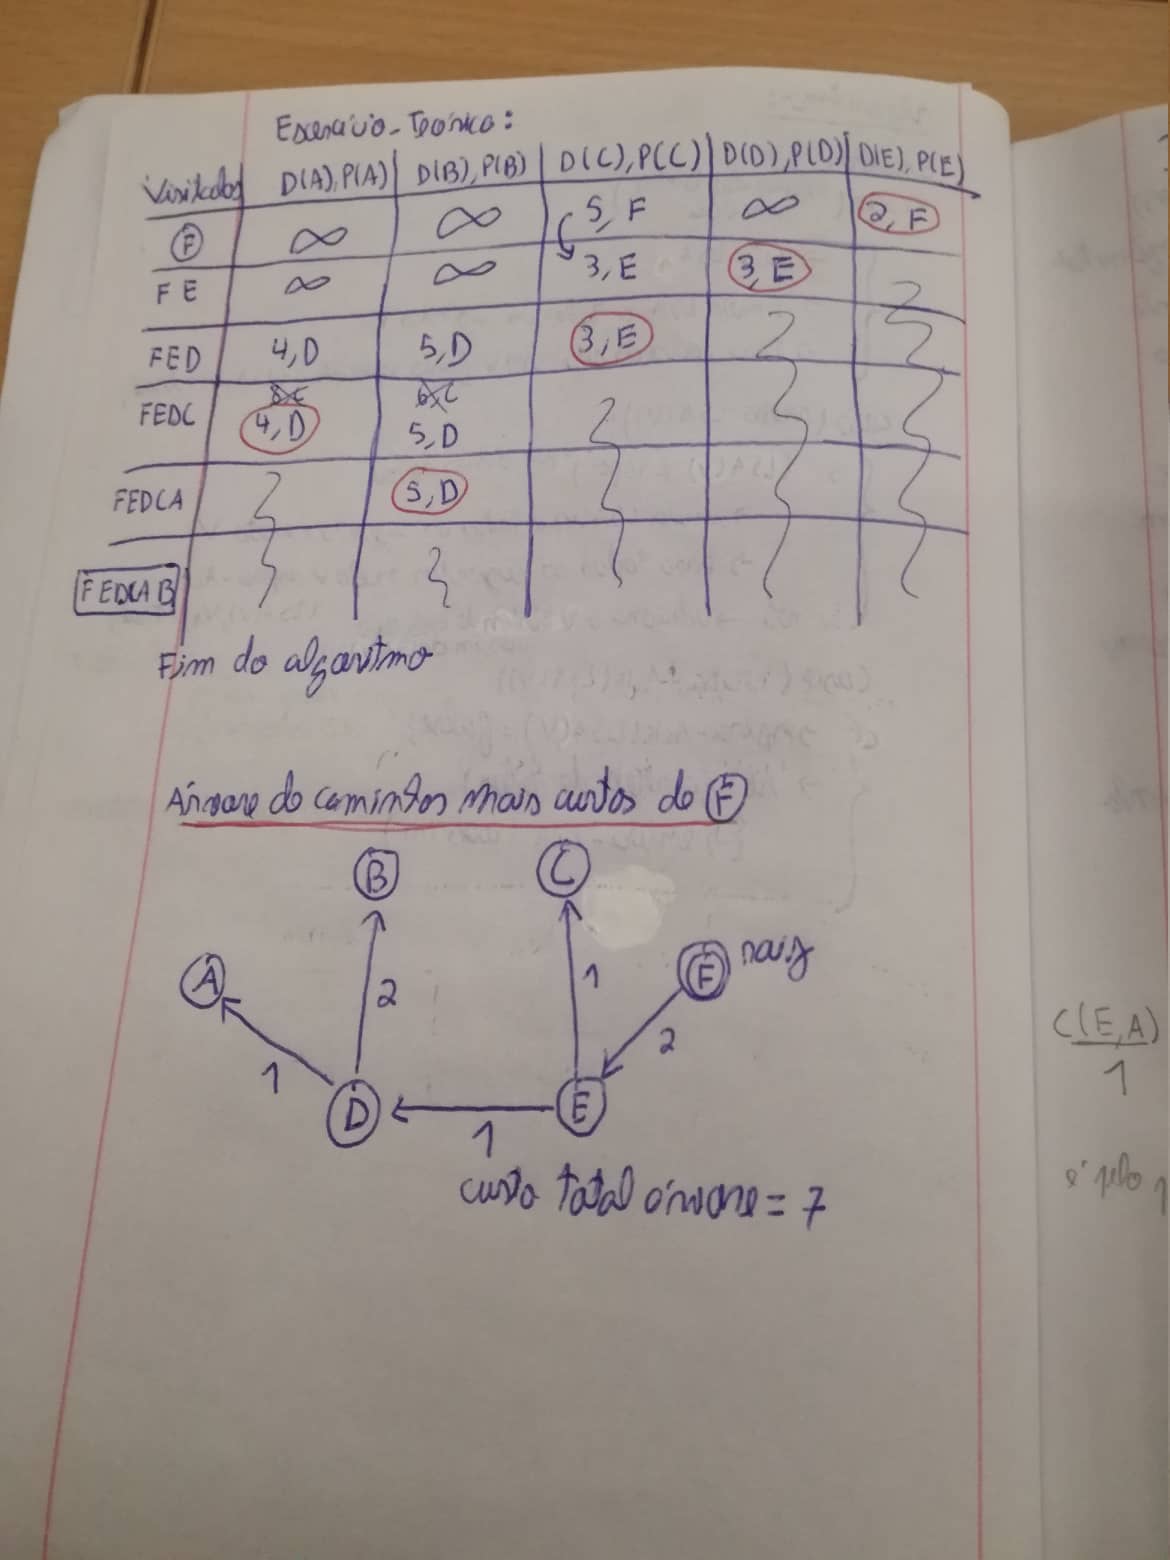 Exercício-Teórico:
Visitados D(A),P(A) D(B),P(B) D(C),P(C) D(D),P(D) D(E),P(E)
F ∞ ∞ 5, F ∞ 2, F
F E ∞ ∞ 3, E 3, E
FED 4, D 5, D 3, E
8,C 6,C
FEDC 4, D 5, D
FEDCA 5, D
FEDCAB
Fim do algoritmo
Árvore de caminhos mais curtos do F
B C
A F raiz
1 2 1 2
D E
1
custo total árvore = 7
C(E,A)
1